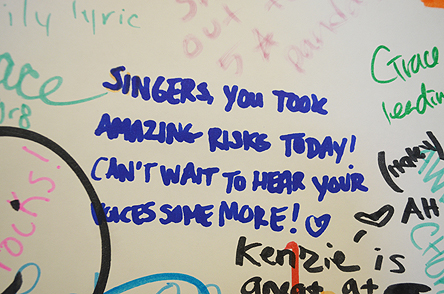 ily lyric
Grace
leadin
SINGERS, YOU TOOK
AMAZING RISKS TODAY!
CAN'T WAIT TO HEAR YOUR
VOICES SOME MORE! ♡
rocks!
♡ AH
Kenzie is
great at